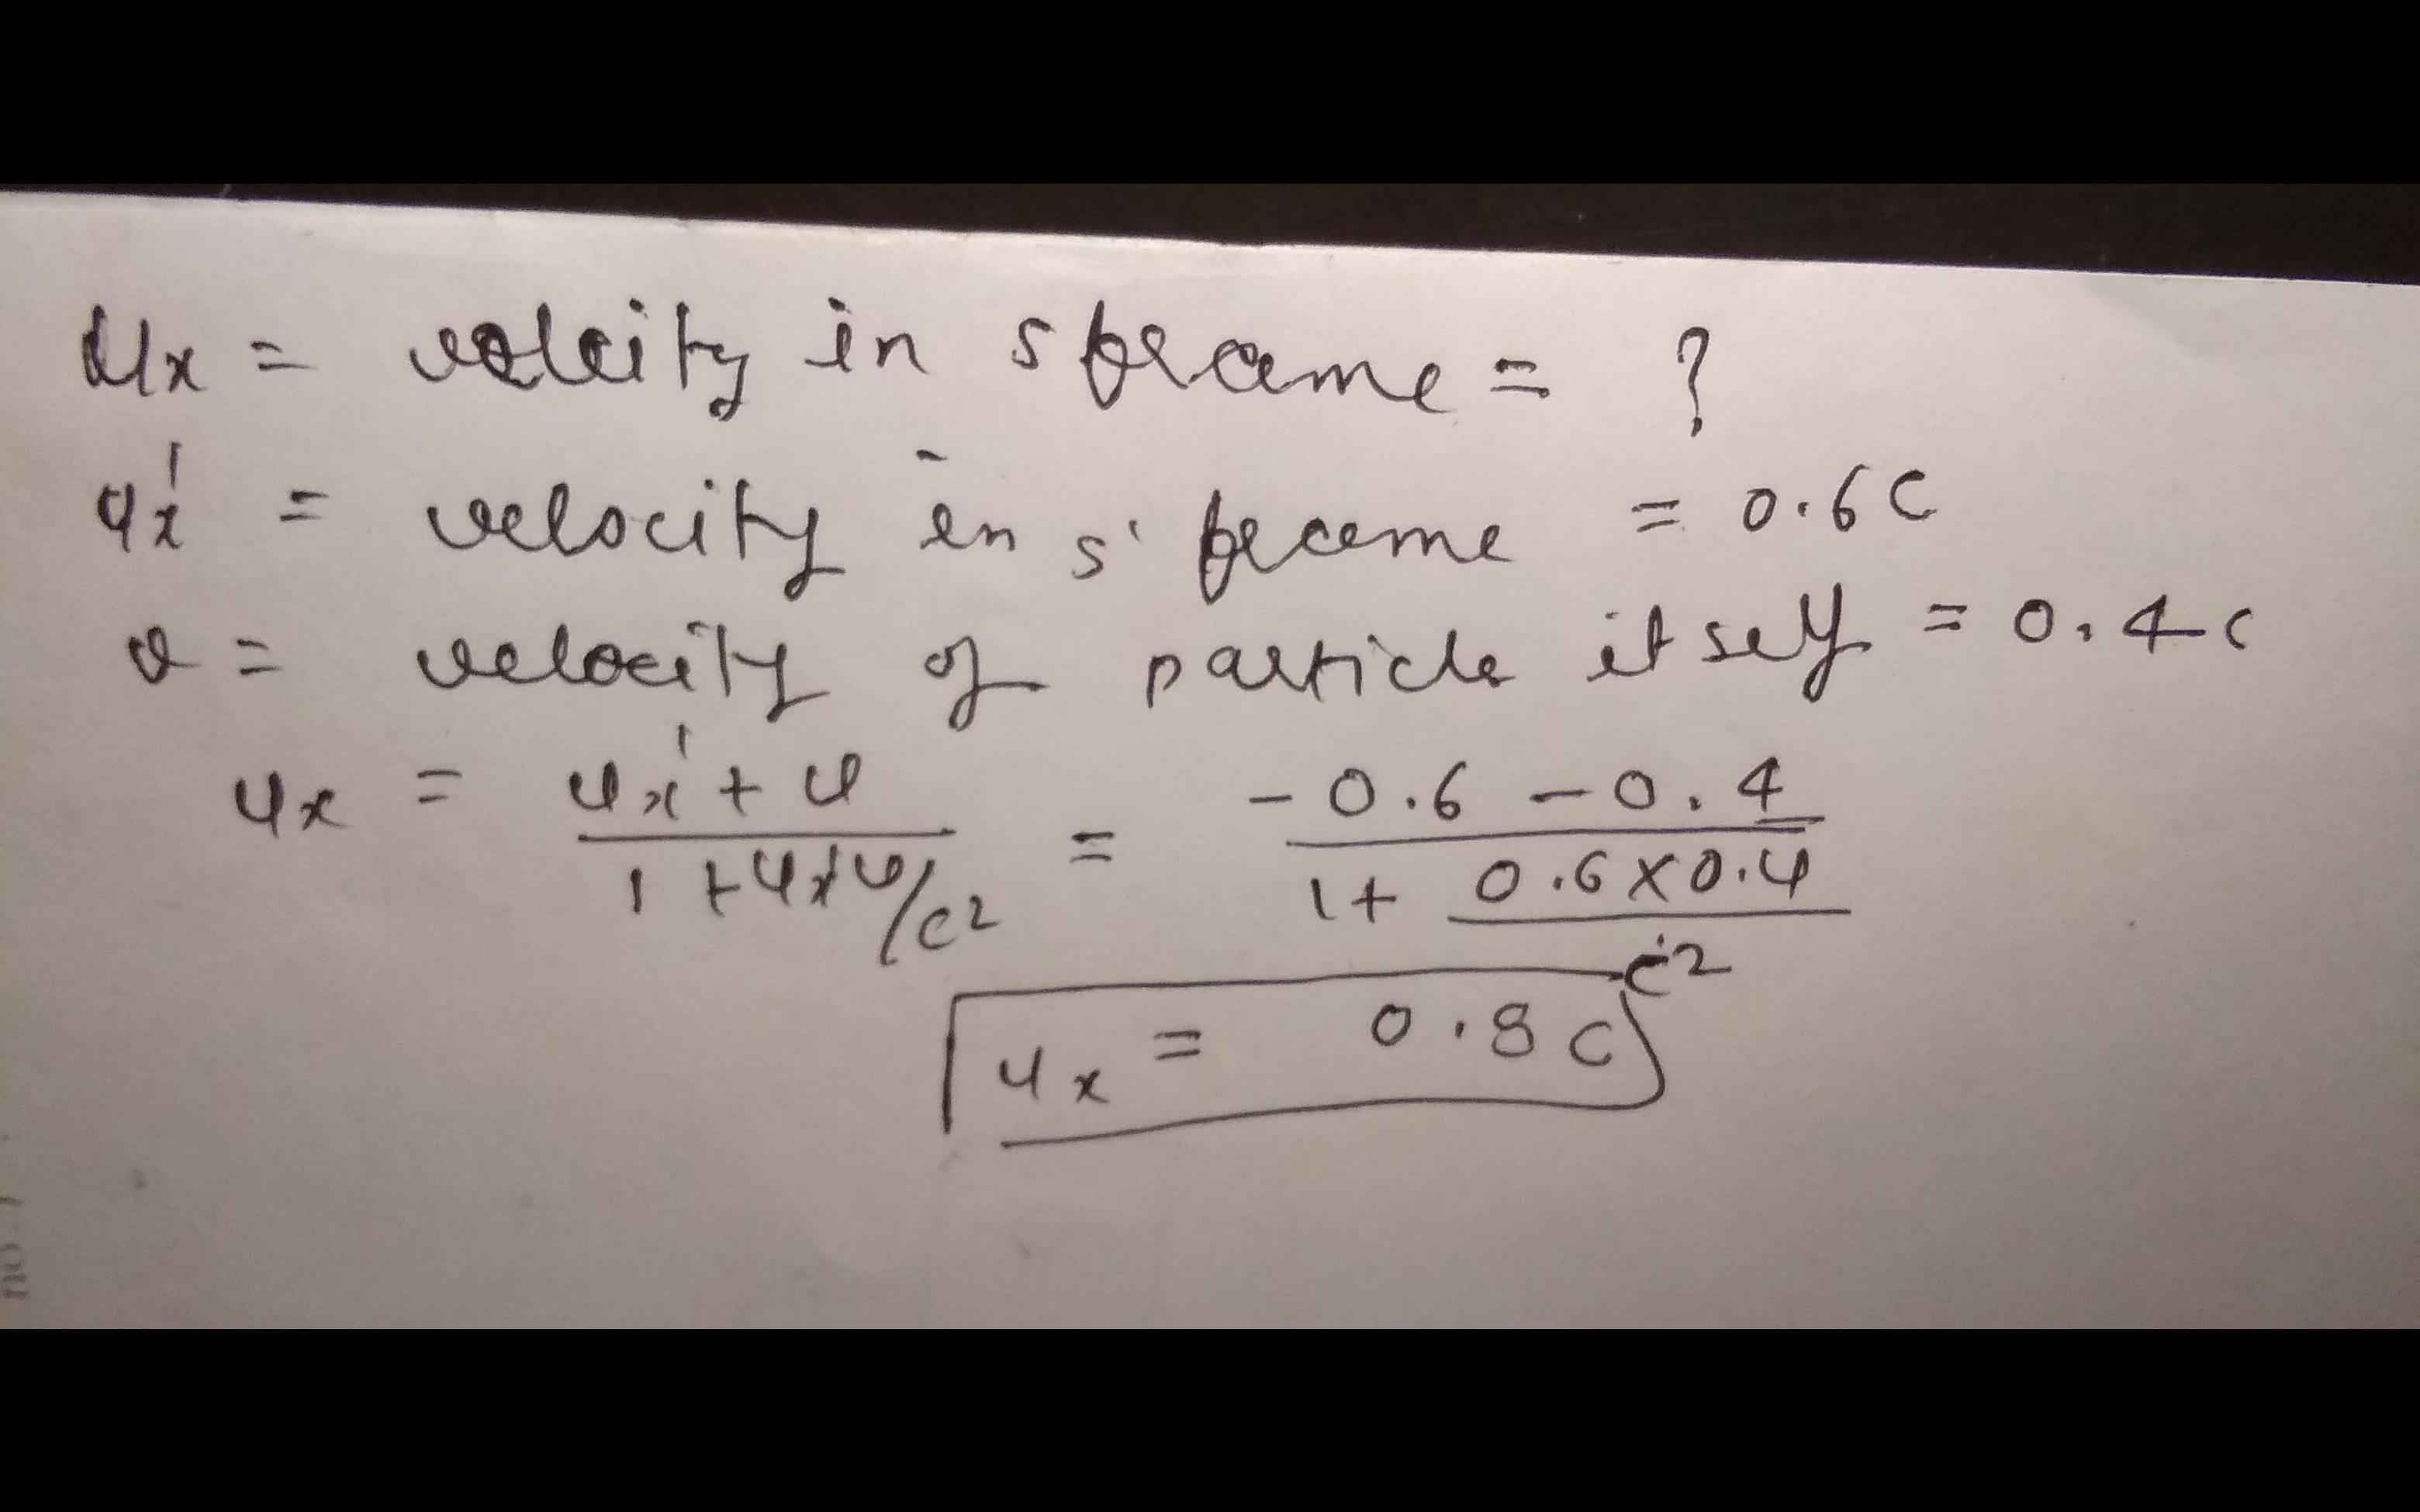 ux = velcity in s frame = ?
ux' = velocity in s' frame = 0.6c
v = velocity of particle itself = 0.4c
ux = ux' + v / 1 + ux'v/c2 = -0.6 - 0.4 / 1 + 0.6x0.4 / c2
ux = 0.8c